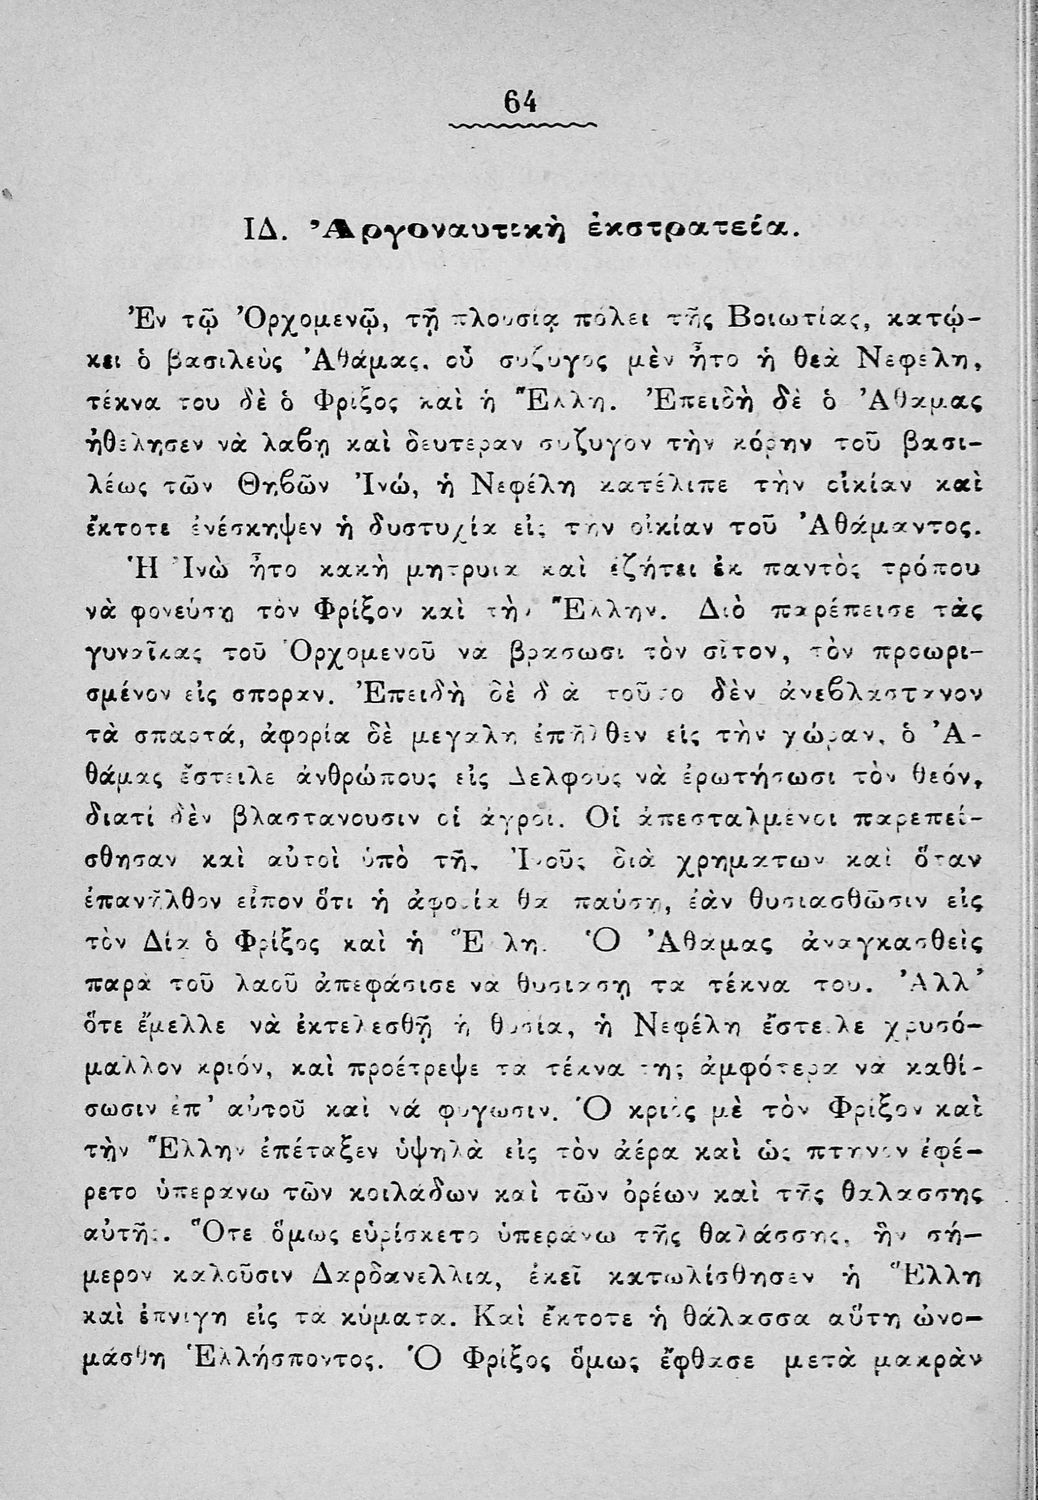 64
ΙΔ. Ἀργοναυτικὴ ἐκστρατεία.
Ἐν τῷ Ὀρχομενῷ, τῇ πλουσίᾳ πόλει τῆς Βοιωτίας, κατῴ-
κει ὁ βασιλεὺς Ἀθάμας. οὗ συζυγος μὲν ἦτο ἡ θεὰ Νεφελη,
τέκνα του δὲ ὁ Φρίξος καὶ ἡ Ἕλλη. Ἐπειδὴ δὲ ὁ Ἀθαμας
ἠθελησεν νὰ λαβῃ καὶ δευτεραν συζυγον τὴν κόρην τοῦ βασι-
λέως τῶν Θηβῶν Ἰνώ, ἡ Νεφέλη κατέλιπε τὴν οἰκίαν καὶ
ἔκτοτε ἐνέσκηψεν ἡ δυστυχία εἰς την οἰκίαν τοῦ Ἀθάμαντος.
Ἡ Ἰνὼ ἦτο κακὴ μητρυια καὶ ἐζήτει ἐκ παντὸς τρόπου
νὰ φονεύσῃ τὸν Φρίξον καὶ τὴν Ἕλλην. Διὸ παρέπεισε τὰς
γυναῖκας τοῦ Ὀρχομενοῦ να βρασωσι τὸν σῖτον, τὸν προωρι-
σμένον εἰς σποραν. Ἐπειδὴ δὲ διὰ τοῦτο δὲν ἀνεβλάστανον
τὰ σπαρτά, ἀφορία δὲ μεγαλη ἐπῆλθεν εἰς τὴν χώραν, ὁ Ἀ-
θάμας ἔστειλε ἀνθρώπους εἰς Δελφους νὰ ἐρωτήσωσι τὸν θεόν,
διατί δὲν βλαστανουσιν οἱ ἀγροί. Οἱ ἀπεσταλμενοι παρεπεί-
σθησαν καὶ αὐτοὶ ὑπὸ τῆς Ἰνοῦς διὰ χρηματων καὶ ὅταν
ἐπανῆλθον εἶπον ὅτι ἡ ἀφορία θα παύσῃ, ἐάν θυσιασθῶσιν εἰς
τὸν Δία ὁ Φρίξος καὶ ἡ Ἕλλη. Ὁ Ἀθαμας ἀναγκασθεὶς
παρα τοῦ λαοῦ ἀπεφάσισε να θυσιασῃ τα τέκνα του. Ἀλλ’
ὅτε ἔμελλε νὰ ἐκτελεσθῇ ἡ θυσία, ἡ Νεφέλη ἔστειλε χρυσό-
μαλλον κριόν, καὶ προέτρεψε τα τέκνα της ἀμφότερα να καθί-
σωσιν ἐπ’ αὐτοῦ καὶ νά φυγωσιν. Ὁ κριὸς μὲ τὸν Φρίξον καὶ
τὴν Ἕλλην ἐπέταξεν ὑψηλὰ εἰς τὸν ἀέρα καὶ ὡς πτηνὸν ἐφέ-
ρετο ὑπερανω τῶν κοιλάδων καὶ τῶν ὀρέων καὶ τῆς θαλασσης
αὐτῆς. Ὅτε ὅμως εὑρίσκετο ὑπερανω τῆς θαλάσσης, ἣν σή-
μερον καλοῦσιν Δαρδανελλια, ἐκεῖ κατωλίσθησεν ἡ Ἕλλη
καὶ ἐπνιγη εἰς τα κύματα. Καὶ ἔκτοτε ἡ θάλασσα αὕτη ὠνο-
μάσθη Ἑλλήσποντος. Ὁ Φρίξος ὅμως ἔφθασε μετὰ μακρὰν